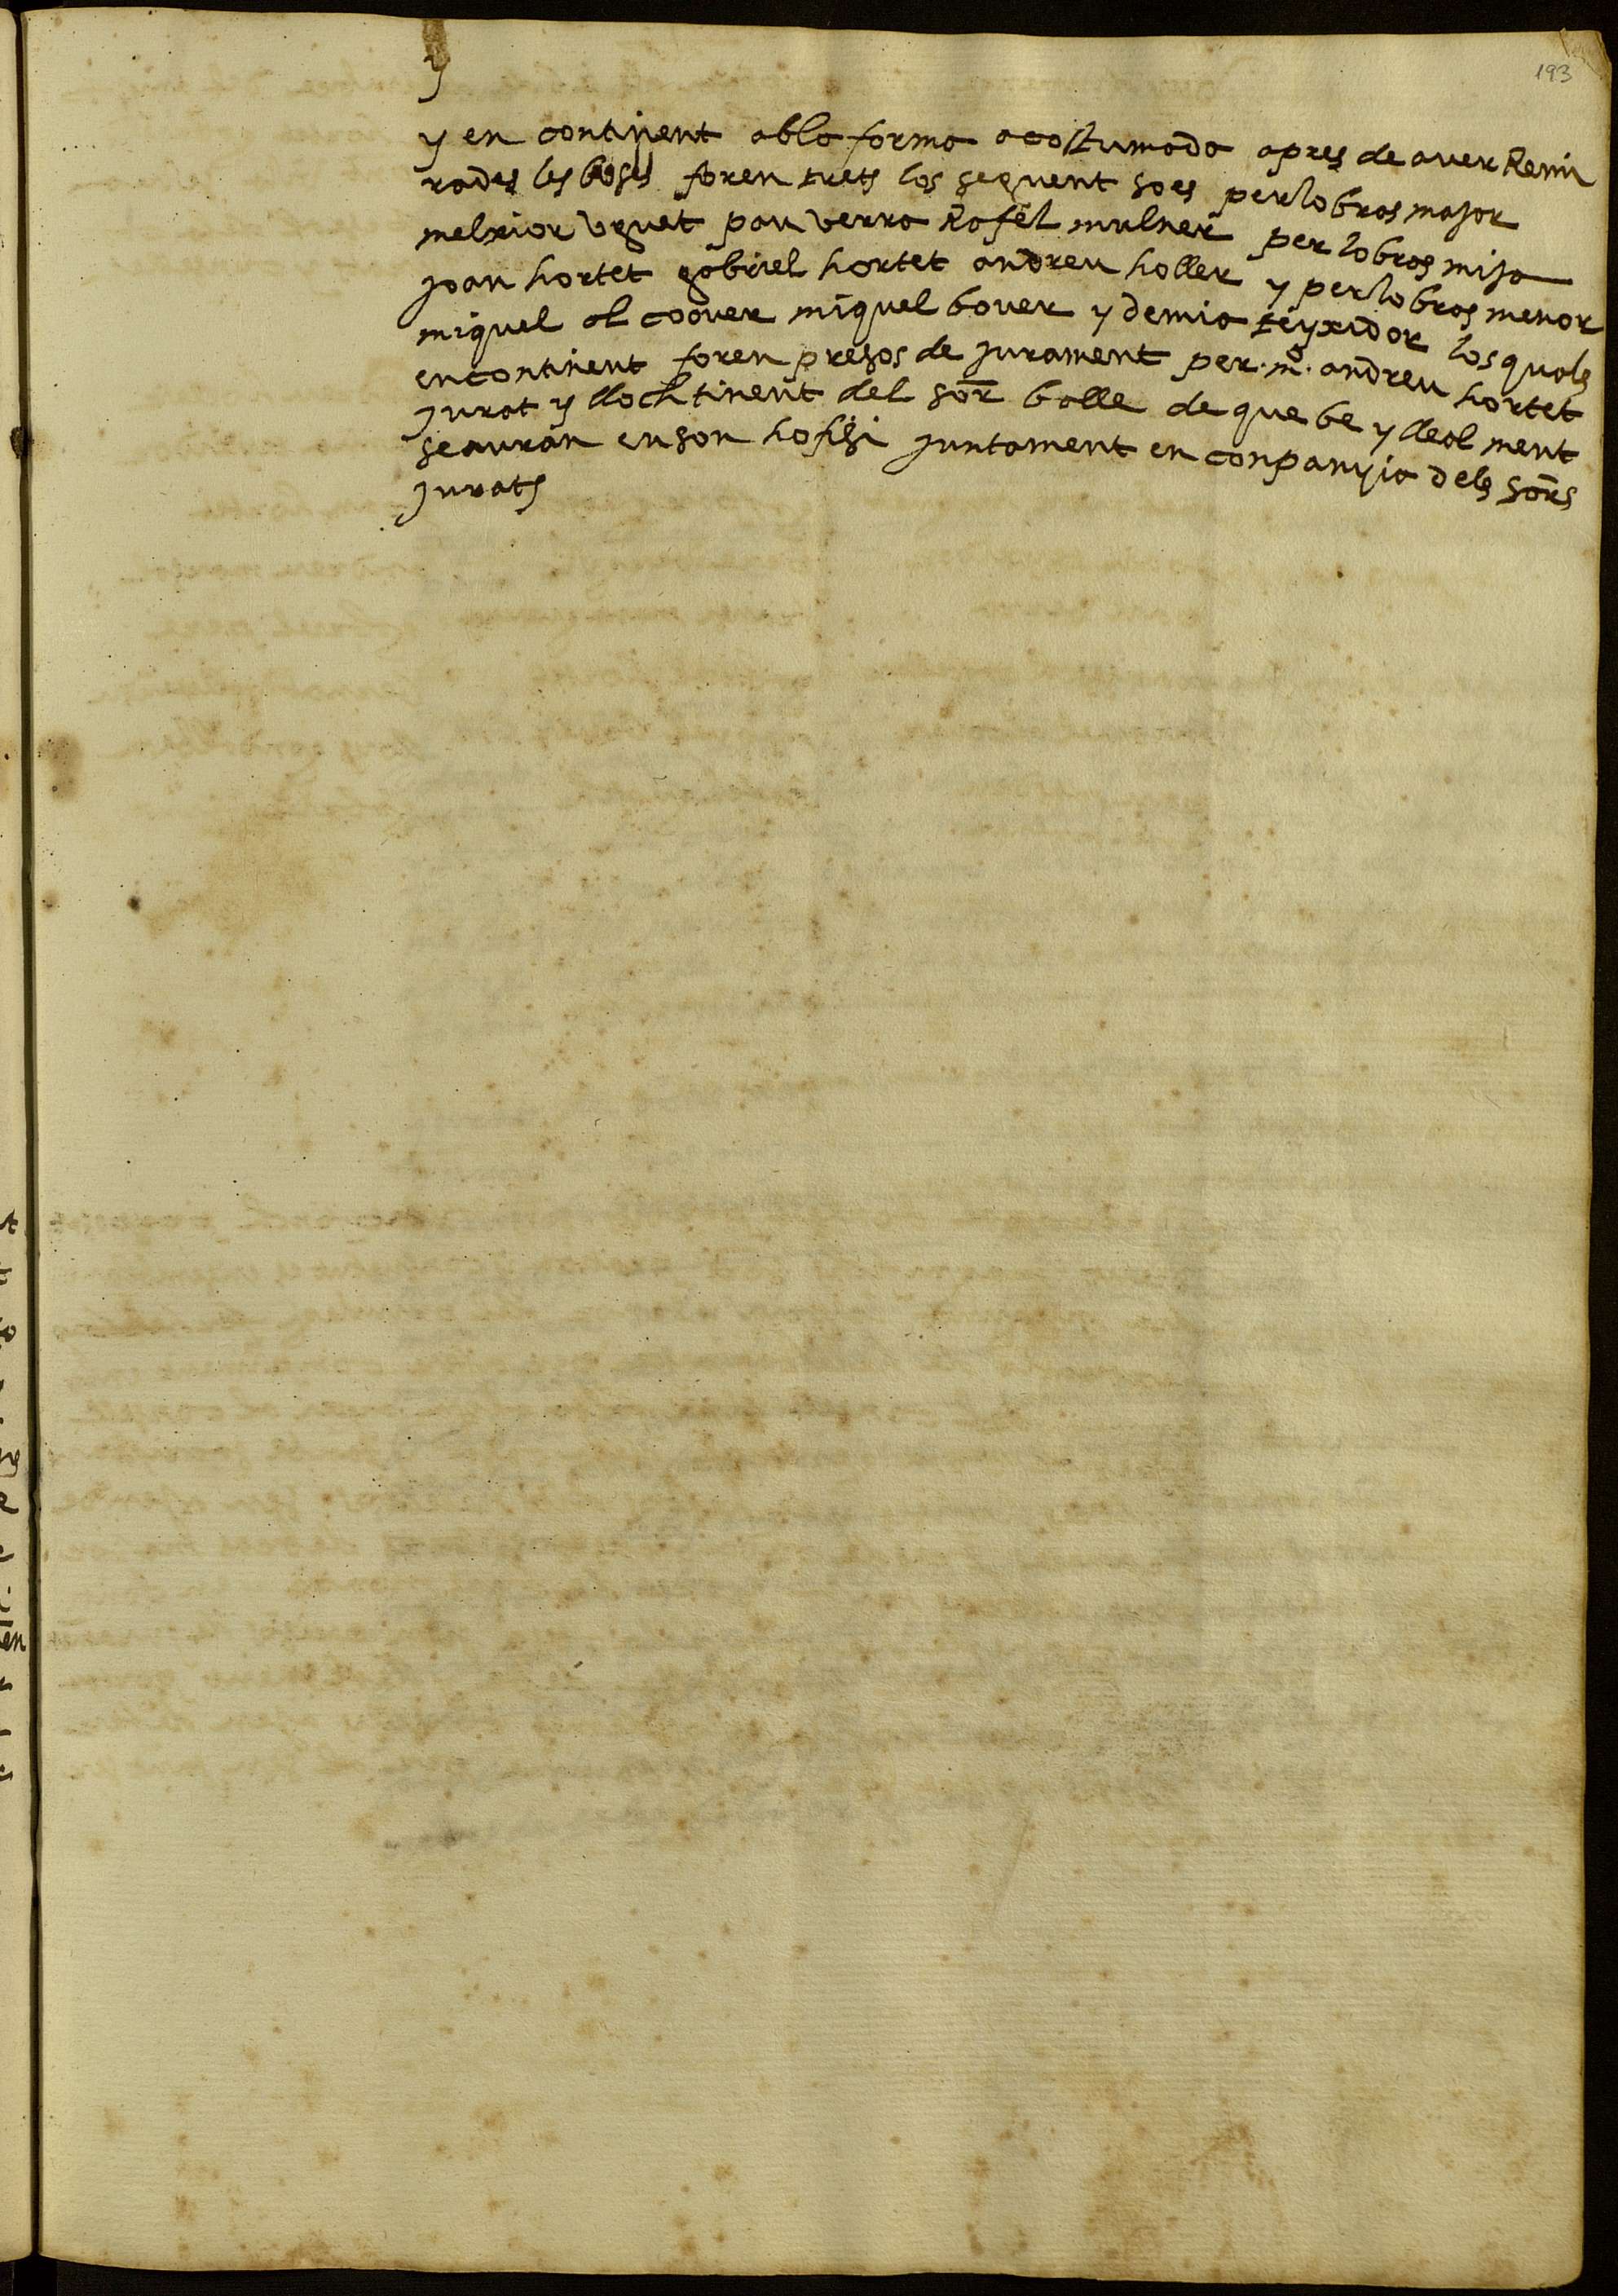 193
y
y en continent abla forma acostumada apres de aver Remi
rades les boses foren trets los seguent soes per lo bras major
melxior vguet pau verra Rafel mulner per lo bras mija
joan hortet gabriel hortet andreu holler y per lo bras menor
miquel al coover miquel bover y demia teyxidor los quals
encontinent foren presos de jurament per .mº. andreu hortet
jurat y llochtinent del sor balle de que be y lleal ment
se auran en son hofisi juntament en conpanyia dels sors
jurats